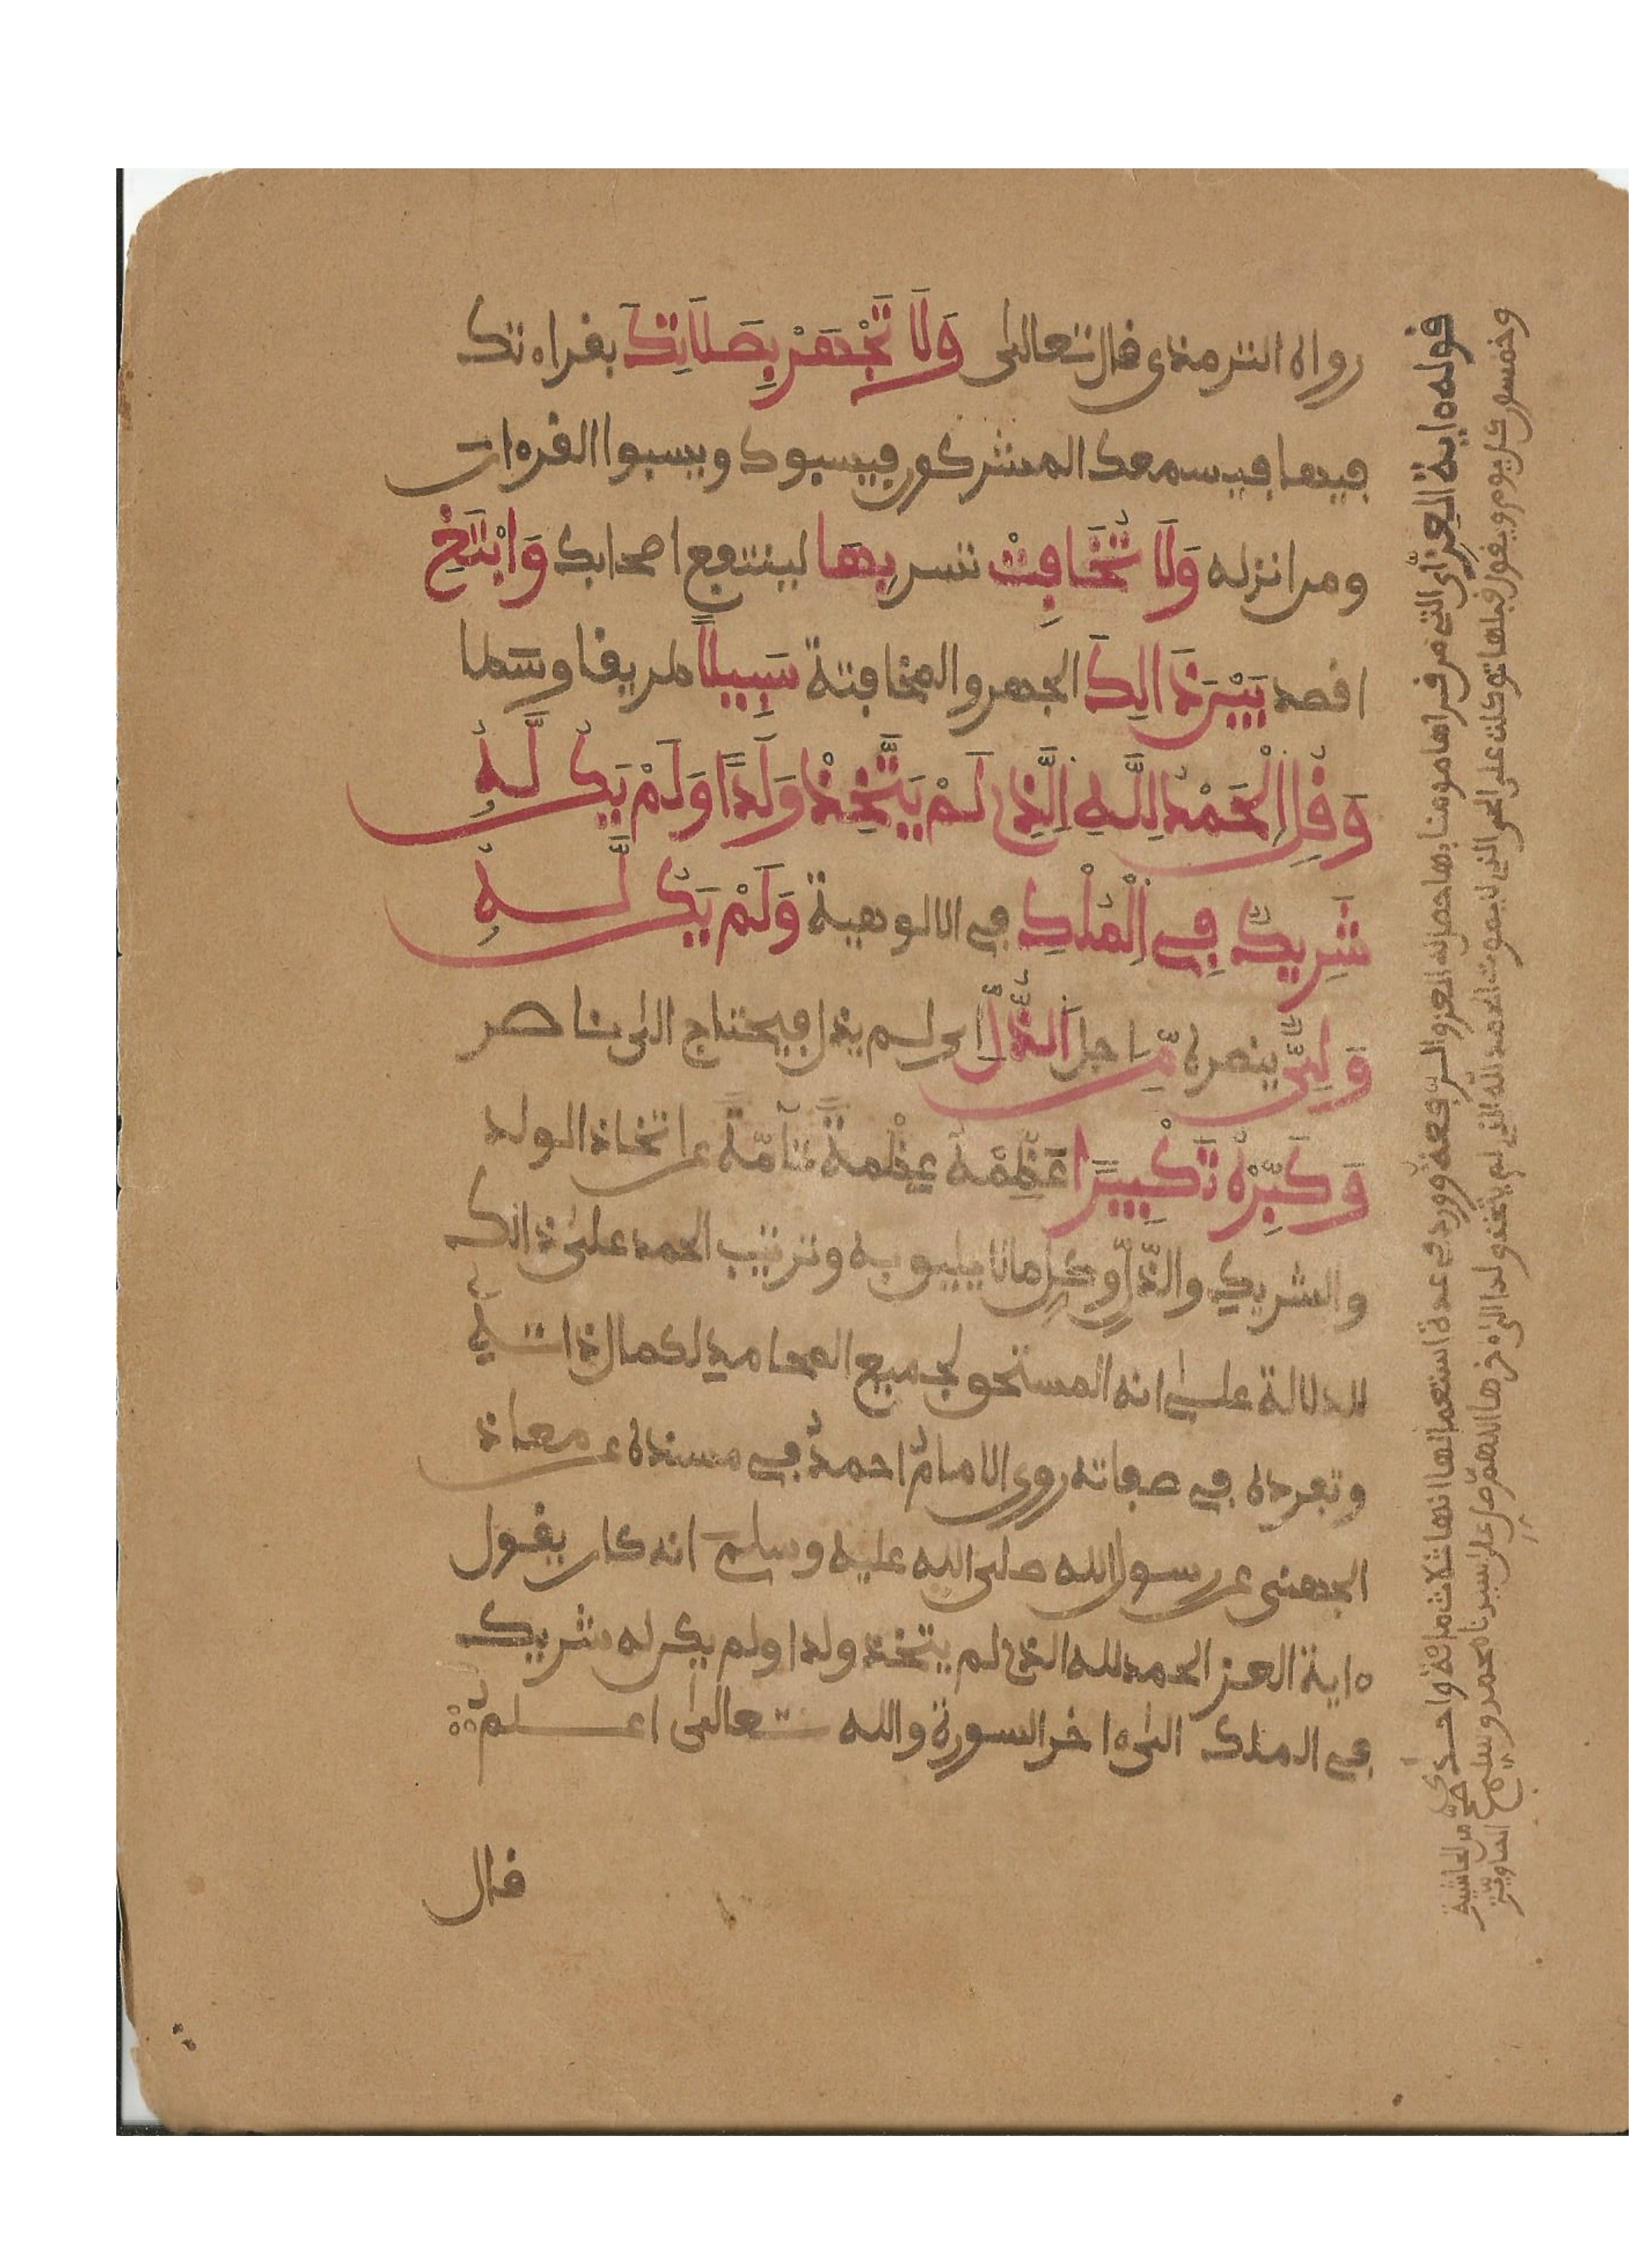 رواه الترمذي قال تعالى وَلَا تَجْهَرْ بِصَلَاتِكَ بقراءتك
فيها فيسمعك المشركون فيسبوك ويسبوا القرءان
ومن انزله وَلَا تُخَافِتْ تسر بِهَا لينتفع اصحابك وَابْتَغِ
اقصد بَيْنَ ذَالِكَ الجهر والمخافتة سَبِيلًا طريقا وسطا
وَقُلِ اِلْحَمْدُ لِلهِ اِلَّذِے لَمْ يَتَّخِذْ وَلَدًا وَلَمْ يَكُن لَّهُ
شَرِيكٌ فِے اِلْمُلْكِ في الالوهية وَلَمْ يَكُن لَّهُ
وَلِيٌّ ينصره مِّنَ اجل اَلذُّلِّ اي لم يذل فيحتاج الى ناصر
وَكَبِّرْهُ تَكْبِيرًا عَظِّمْهُ عظمةً تآمّةً عن اتخاذ الولد
والشريك والذّلّ وكل ما لا يليق به وترتيب الحمد على ذالك
للدلالة على انه المستحق لجميع المحامد لكمال ذاته
وتفرده في صفاته روى الامامُ احمدُ في مسنده عن معاذ
الجهني عن رسول الله صلى الله عليه وسلم انه كان يقول
ءاية العز الحمد لله الذي لم يتخذ ولدا ولم يكن له شريك
في الملك الى ءاخر السورة والله تعالى اعلم
قال
قوله ءاية العز اي التي من قراها مومنا بها حصل له العز والرّفعة وورد في عدة استعمالها انها ثلاث مائة واحدى
وخمسون كل يوم ويقول قبلها توكلت على الحي الذي لا يموت الحمد لله الذي لم يتخذ ولدا الى ءاخرها اللهم صل على سيدنا محمد وسلم
صح من حاشية
الصاوي